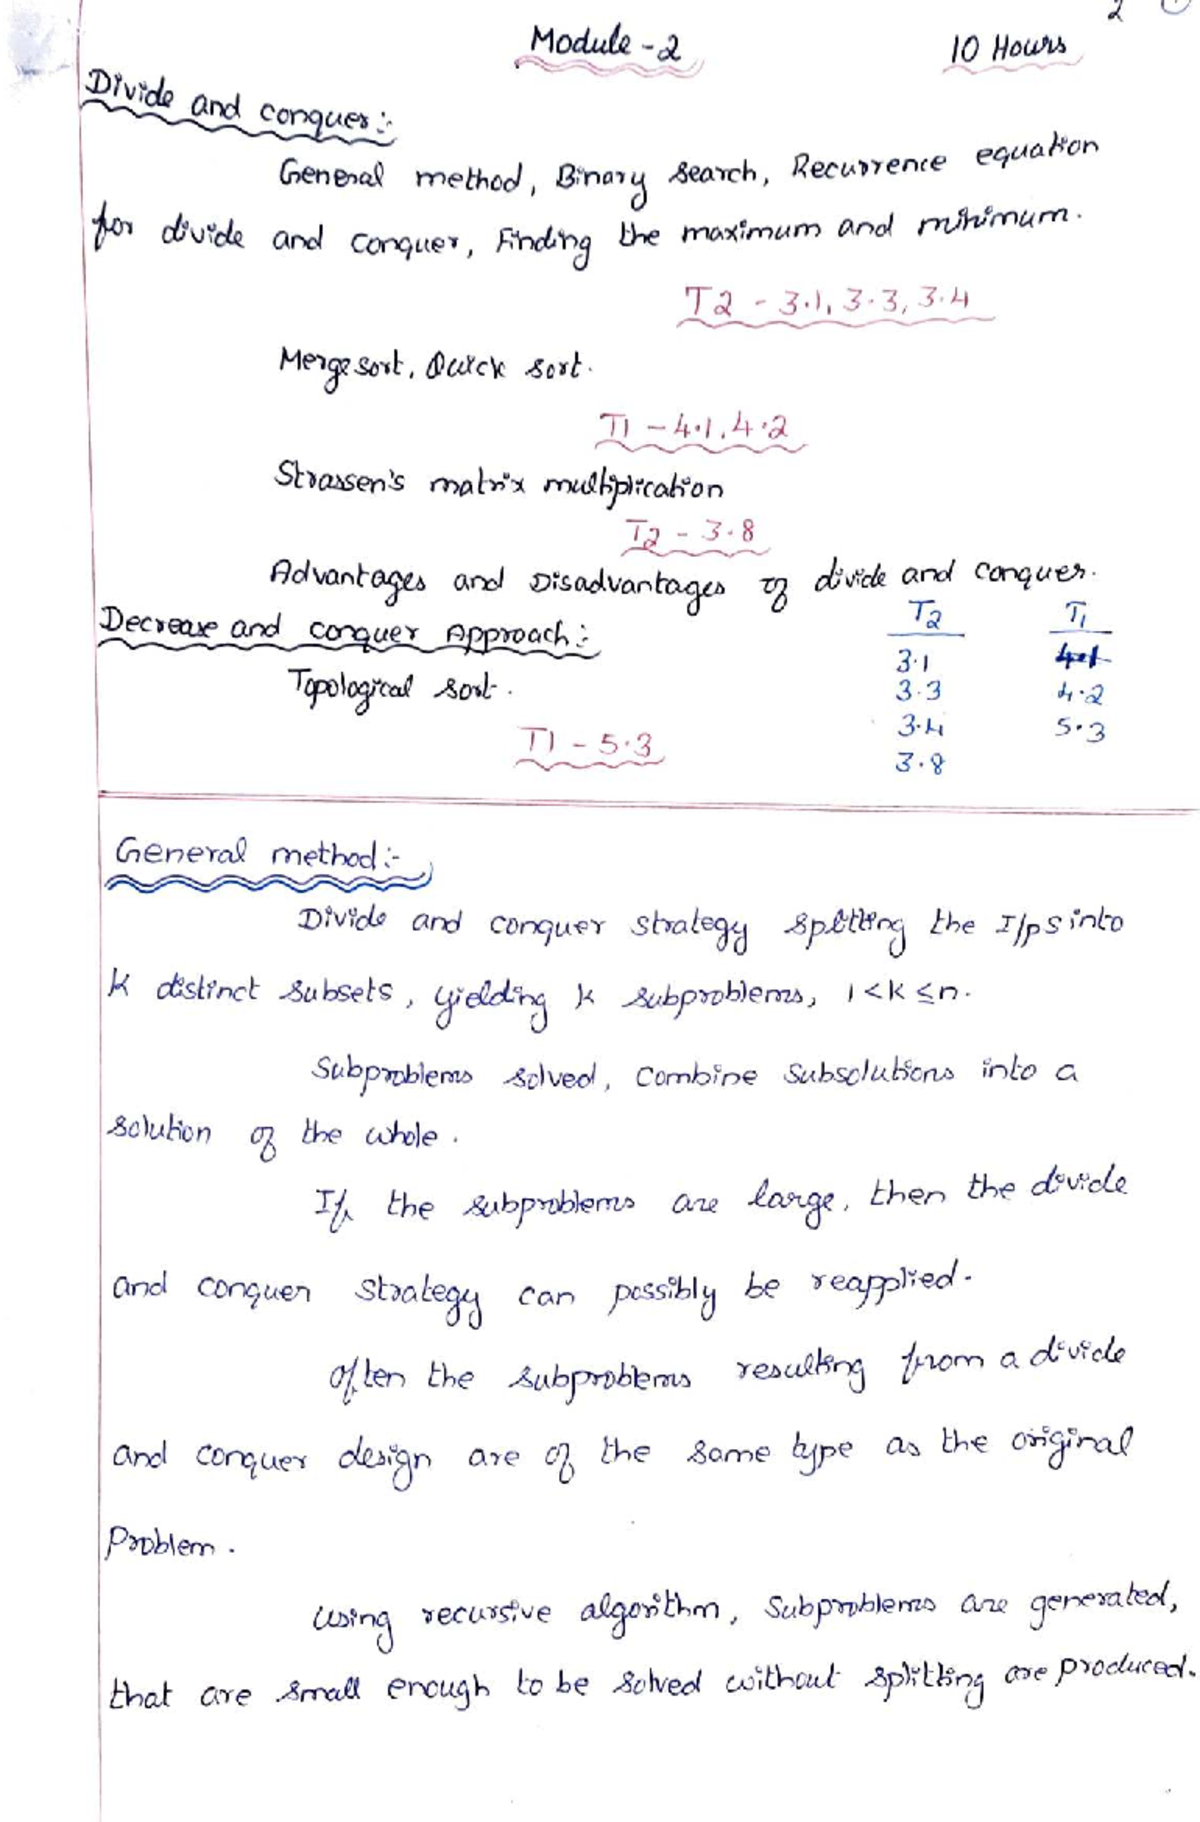 2
Module - 2 10 Hours
Divide and conquer :-
General method, Binary search, Recurrence equation
for divide and conquer, Finding the maximum and minimum.
T2 - 3.1, 3.3, 3.4
Mergesort, Quick sort.
T1 - 4.1, 4.2
Strassen's matrix multiplication
T2 - 3.8
Advantages and Disadvantages of divide and conquer.
Decrease and conquer Approach :-
Topological sort.
T1 - 5.3
T2 T1
3.1 4.1
3.3 4.2
3.4 5.3
3.8
General method :-
Divide and conquer strategy splitting the I/ps into
k distinct subsets, yielding k subproblems, 1<k≤n.
Subproblems solved, combine subsolutions into a
solution of the whole.
If the subproblems are large, then the divide
and conquer strategy can possibly be reapplied.
Often the subproblems resulting from a divide
and conquer design are of the same type as the original
problem.
Using recursive algorithm, subproblems are generated,
that are small enough to be solved without splitting are produced.